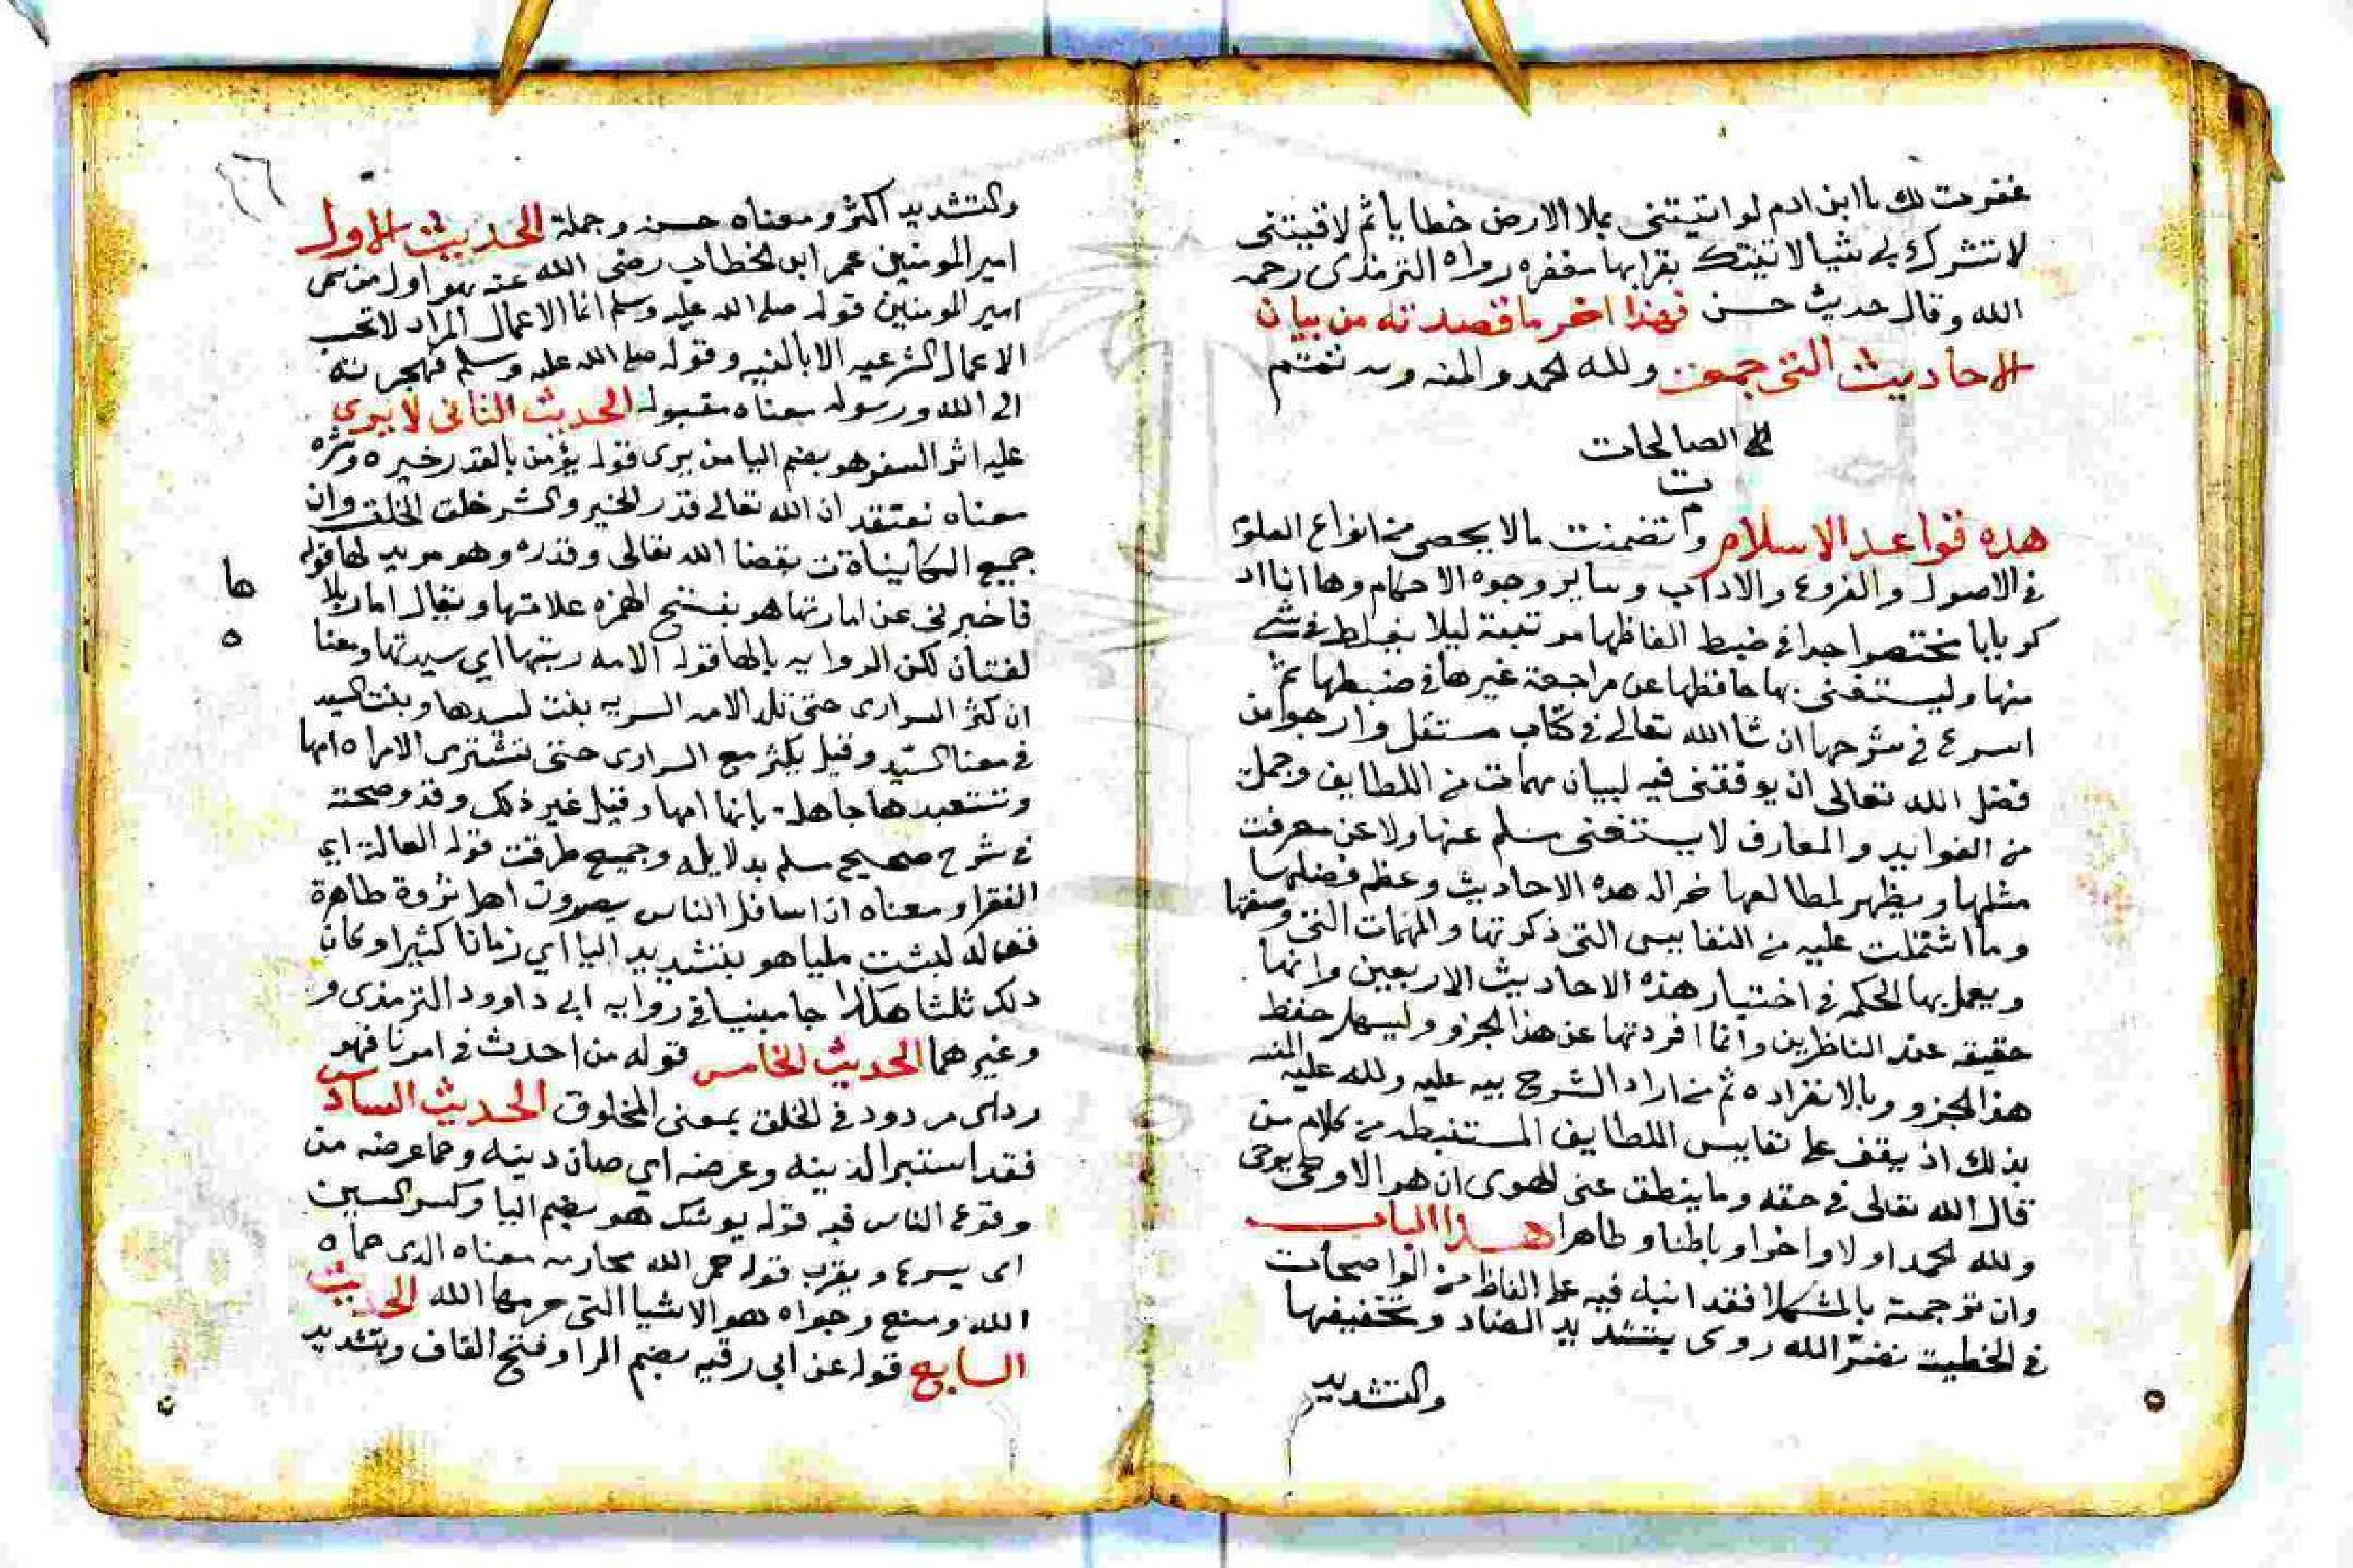 غفرت لك يا ابن ادم لو اتيتني بملا الارض خطايا ثم لاقيتني
لا تشرك بي شيا لاتيتك بقرابها مغفره رواه الترمذي رحمه
الله وقال حديث حسن فهذا اخر ما قصدته من بيان
الاحاديث التي جمعت ولله الحمد والمنه وبه تتم
الصالحات
ت
م
هذه قواعد الاسلام وتضمنت مالا يحصى من انواع العلوم
في الاصول والفروع والاداب وساير وجوه الاحكام وها انا اد
كر بابا مختصرا جدا في ضبط الفاظها مرتبة ليلا يغلط في شي
منها وليستغنى بها حافظها عن مراجعة غيرها في ضبطها ثم
اسرع في شرحها ان شا الله تعالى في كتاب مستقل وارجوا من
فضل الله تعالى ان يوفقني فيه لبيان مهمات من اللطايف وجمل
من الفوايد والمعارف لا يستغنى مسلم عنها ولا عن معرفت
مثلها ويظهر لمطالعها خزاله هده الاحاديث وعظم فضلها
وما اشتملت عليه من النفايس التي ذكرتها والمهمات التي وصفتها
ويعمل بها الحكمه في اختيار هذه الاحاديث الاربعين وانها
حقيقه عند الناظرين وانما افردتها عن هذا الجزو وليسهل حفظ
هذا الجزو وبالانفراده ثم من اراد الشرح بيه عليه ولله عليه المنه
بذلك اذ يقف على نفايس اللطايف المستنبطه من كلام من
قال الله تعالى في حقه وما ينطق عن الهوى ان هو الا وحي يوحى
ولله الحمد اولا واخرا وباطنا وظاهرا هذا الباب
وان ترجمته بالمشكلا فقد انبه فيه على الفاظ من الواضحات
في الخطبت نضر الله روى بتشديد الضاد وتخفيفها
والتشديد
والتشديد اكثر ومعناه حسن وجملة الحديث الاول
امير المومنين عمر ابن الخطاب رضي الله عنه هو اول من سمى
امير المومنين قوله صلى الله عليه وسلم انما الاعمال المراد لا تحسب
الاعمال الشرعيه الا بالنيه وقوله صلى الله عليه وسلم فهجرته
الى الله ورسوله معناه مقبوله الحديث الثاني لا يرى
عليه اثر السفر هو بضم اليا من يرى قوله يؤمن بالقدر خيره وشره
معناه نعتقد ان الله تعالى قدر الخير والشر خلق الخلق وان
جميع الكايناة بقضا الله تعالى وقدره وهو مريد لها قوله
فاخبرني عن امارتها هو بفتح الهمزه علامتها ويقال امار بلا
ها
ه
لغتان لكن الروايه بالها قوله الامه ربتها اي سيدتها ومعنا
ان كثر السراري حتى تلد الامه السريه بنت لسيدها وبنت السيد
في معنا السيد وقيل يكثر مع السراري حتى تشتري الامراه امها
وتستعبدها جاهلة بانها امها وقيل غير ذلك وقد وضحته
في شرح صحيح مسلم بدلايله وجميع طرقت قوله العالة اي
الفقرا ومعناه ان اسافل الناس يصيرون اهل ثروة ظاهرة
قوله لبثت مليا هو بتشديد اليا اي زمانا كثيرا وكان
دلك ثلثا هكذا جا مبنيا في روايه ابي داوود الترمذي و
وغيرهما الحديث الخامس قوله من احدث في امرنا فهو
رد اى مردود في الخلق بمعنى المخلوق الحديث السادس
فقد استبرا لدينه وعرضه اي صان دينه وحما عرضه من
وقوع الناس فيه قوله يوشك هو بضم اليا وكسر السين
اى يسرع ويقرب قوله حمى الله محارمه معناه الدى حماه
الله ومنع رجواه هو الاشيا التي حرمها الله الحديث
السابع قوله عن ابي رقيه بضم الرا وفتح القاف وتشديد